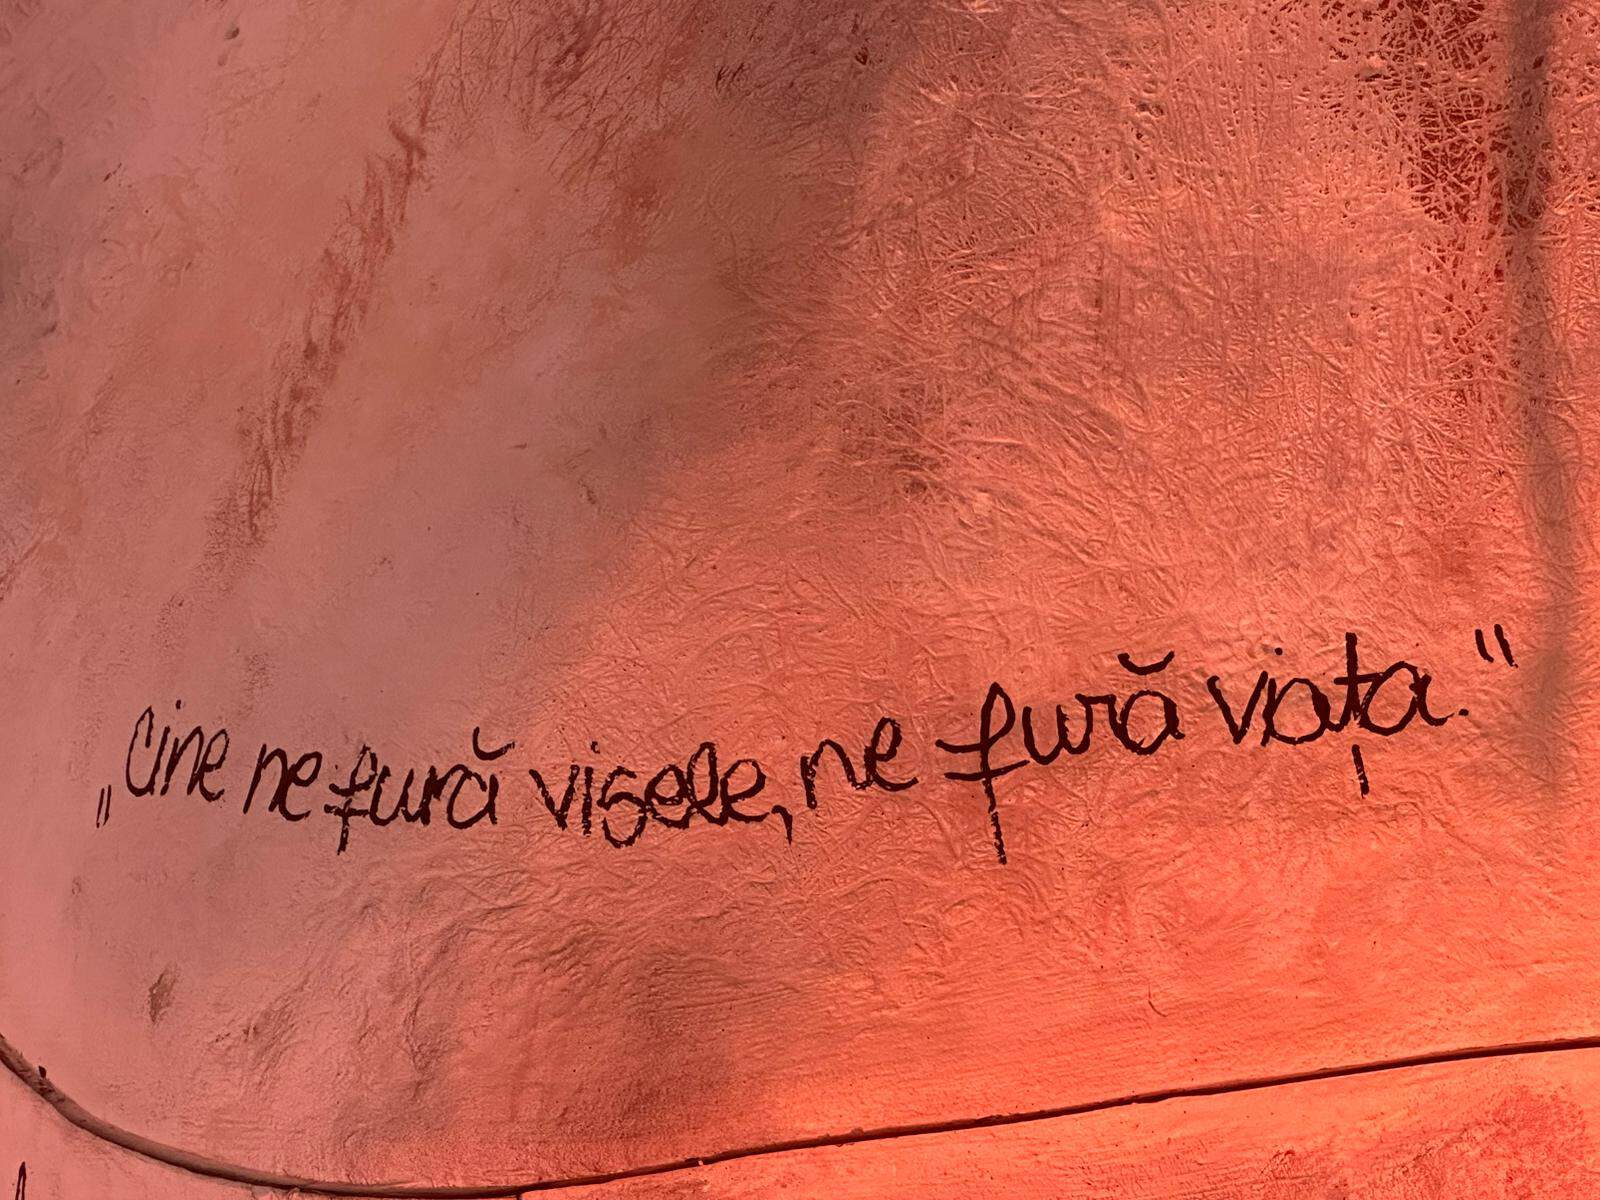 „Cine ne fură visele, ne fură viața."